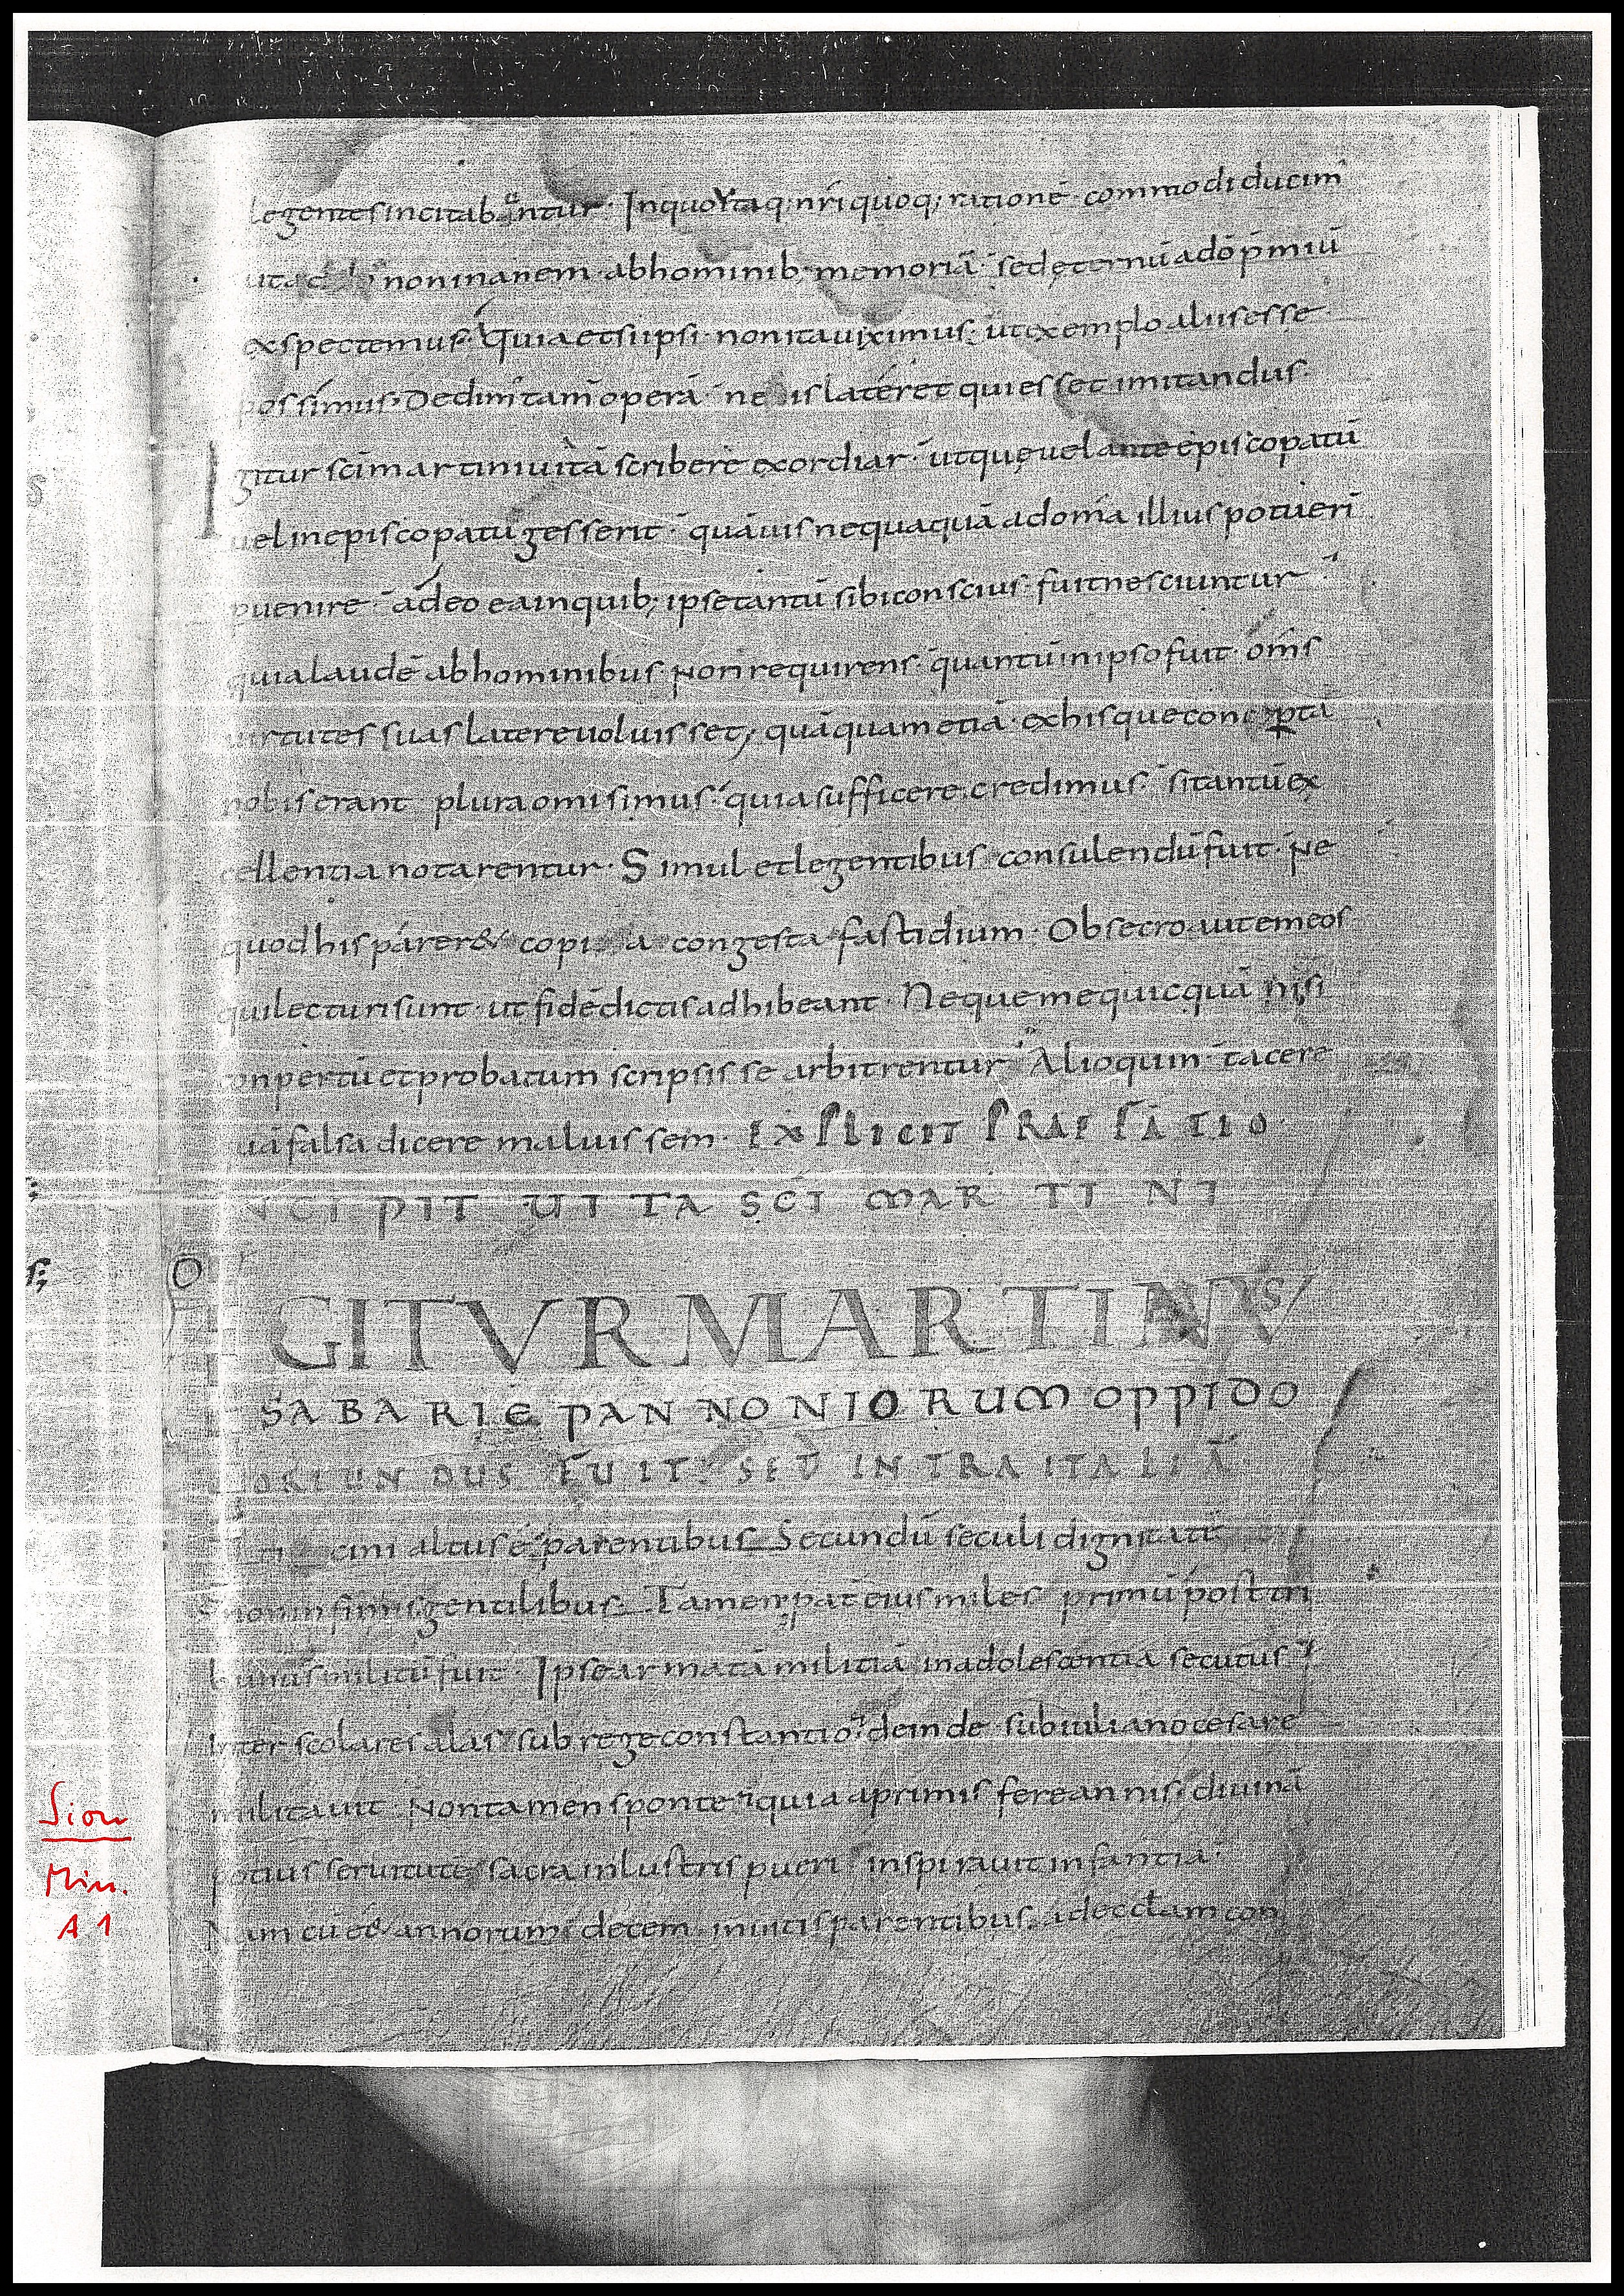 legentes incitabuntur. In quo ita q; nr̄i quoq; rationē commodi ducim'
non inanem ab hominib; memoriā. sed ęternū a dō p̄miū
exspectemus. Quia etsi ipsi non ita uiximus. ut exemplo aliis esse
possimus. Dedim' tam̄ operā ne is lateret qui esset imitandus.
Igitur sc̄i martini uitā scribere exordiar. ut quę uel ante episcopatū
uel in episcopatu gesserit. quāuis nequaquā ad om̄a illius potueri
puenire. adeo ea in quib; ipse tantū sibi conscius fuit nesciuntur
quia laudē ab hominibus Non requirens. quantū in ipso fuit om̄s
uirtutes suas latere uoluisset, quāquam etiā ex his que conperta
nobis erant plura omisimus. quia sufficere credimus. si tantū ex
cellentia notarentur. Simul et legentibus consulendū fuit. Ne
quod his parer& copia congesta fastidium. Obsecro autem eos
qui lecturi sunt. ut fidē dictis adhibeant. Neque me quicquā nisi
conpertū et probatum scripsisse arbitrentur. Alioquin tacere
quā falsa dicere maluissem. EXPLICIT PRAEFATIO.
INCIPIT UITA SC̄I MARTINI
O
IGITVR MARTINVS
SABARIE PANNONIORUM OPPIDO
ORIUNDUS FUIT. SED INTRA ITALIĀ
ticini altus ē. parentibus Secundū seculi dignitatē
non infimis gentilibus. Tamen pat̄ eius miles primū post tri
bunus militū fuit. Ipse armatā militiā in adolescentia secutus
Inter scolares alas sub rege constantio. deinde sub iuliano cesare
militauit Non tamen sponte. quia a primis fere annis. diuinā
potius seruitutē sacra inlustris pueri inspirauit infantia.
Nam cū ee& annorum decem inuitis parentibus. ad ecclam con
Sion
Min.
A 1